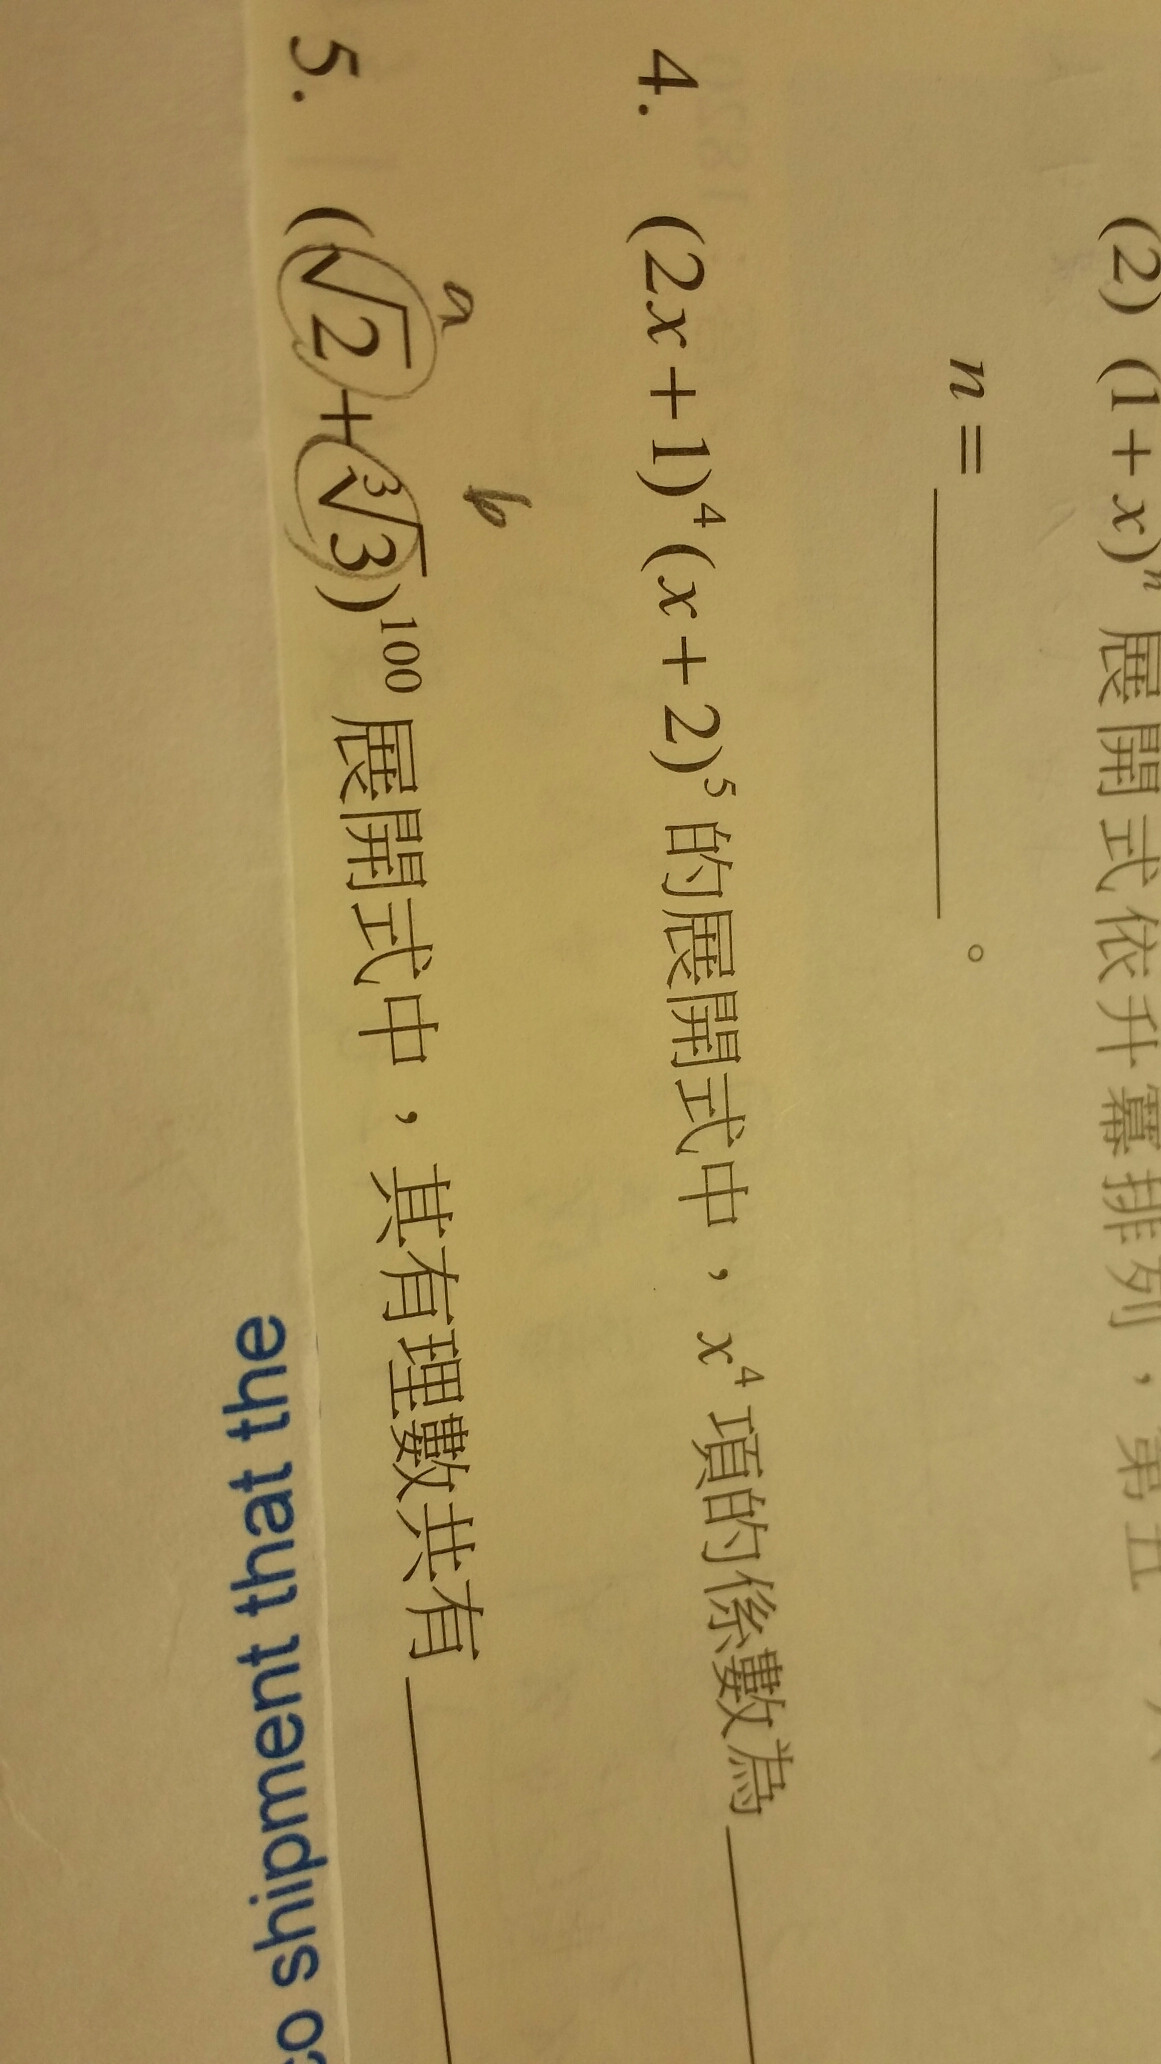 (2) (1+x)ⁿ 展開式依升冪排列，第五、
n = ________。
4. (2x+1)⁴(x+2)⁵ 的展開式中，x⁴ 項的係數為________
a b
5. (√2+∛3)¹⁰⁰ 展開式中，其有理數共有________
co shipment that the